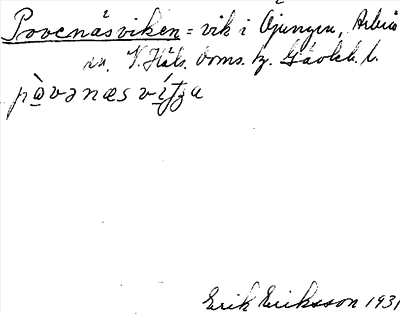 Povenäsviken = vik i Öjungen, Arbrå
sn, V. Häls. doms. tg. Gävleb. l.
pàvənæs víʃʒa
Erik Eriksson 1931